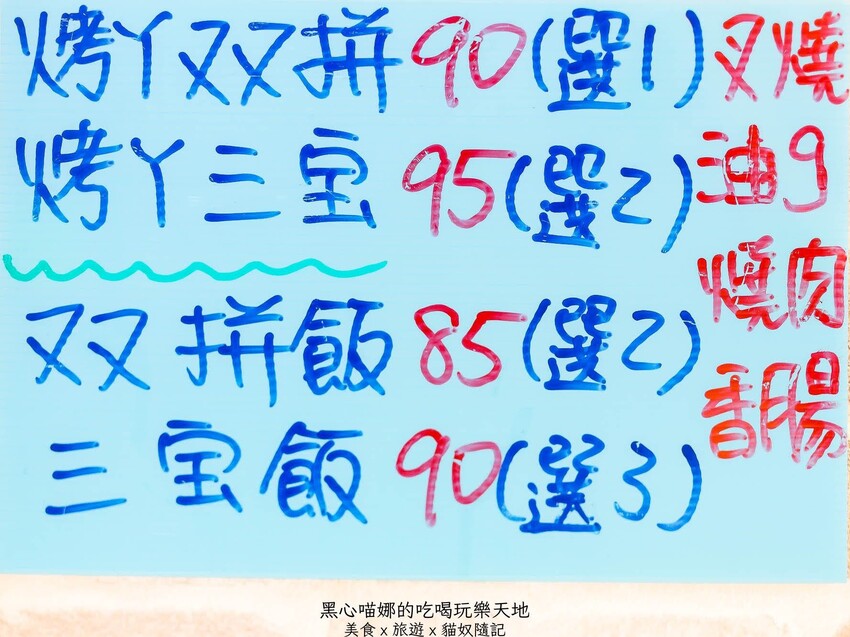 烤丫双拼90(選1)
烤丫三宝95(選2)
双拼飯85(選2)
三宝飯90(選3)
叉燒
油g
燒肉
香腸
黑心喵娜的吃喝玩樂天地
美食 x 旅遊 x 貓奴隨記